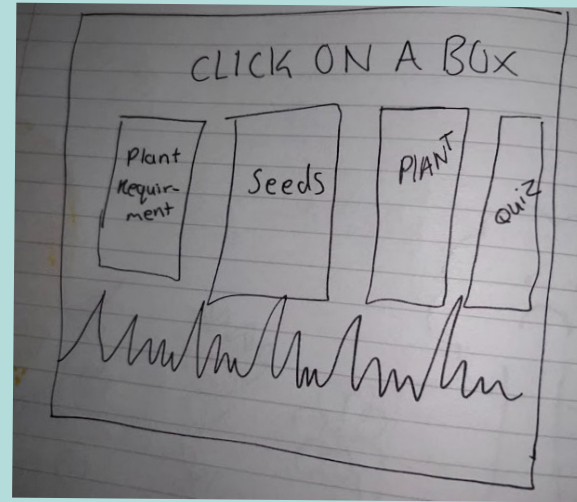 CLICK ON A BOX
Plant
Requir-
ment
Seeds
PLANT
Quiz